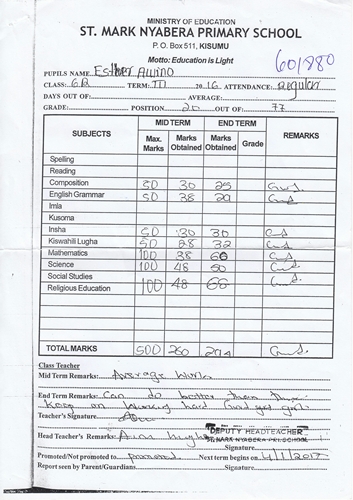 MINISTRY OF EDUCATION
ST. MARK NYABERA PRIMARY SCHOOL
P. O. Box 511, KISUMU
Motto: Education is Light
601/880
PUPILS NAME: Esther Awino
CLASS: 6R TERM: III 2016 ATTENDANCE: Regular
DAYS OUT OF: AVERAGE:
GRADE: POSITION 20 OUT OF: 77
SUBJECTS MID TERM END TERM REMARKS
Max. Marks Marks Obtained Marks Obtained Grade
Spelling
Reading
Composition 50 30 25 Good
English Grammar 50 38 29 Good
Imla
Kusoma
Insha 50 30 30 Good
Kiswahili Lugha 50 28 32 Good
Mathematics 100 38 60 Good
Science 100 48 50 Good
Social Studies
Religious Education 100 48 68
TOTAL MARKS 500 260 294 Good.
Class Teacher
Mid Term Remarks: Average Work
End Term Remarks: Can do better than this
Keep on working hard
Teacher's Signature
DEPUTY HEADTEACHER
ST. MARK NYABERA PRI. SCHOOL
Head Teacher's Remarks: Aim higher
Signature
Promoted/Not promoted to promoted Next term begins on 4/1/2017
Report seen by Parent/Guardians Signature